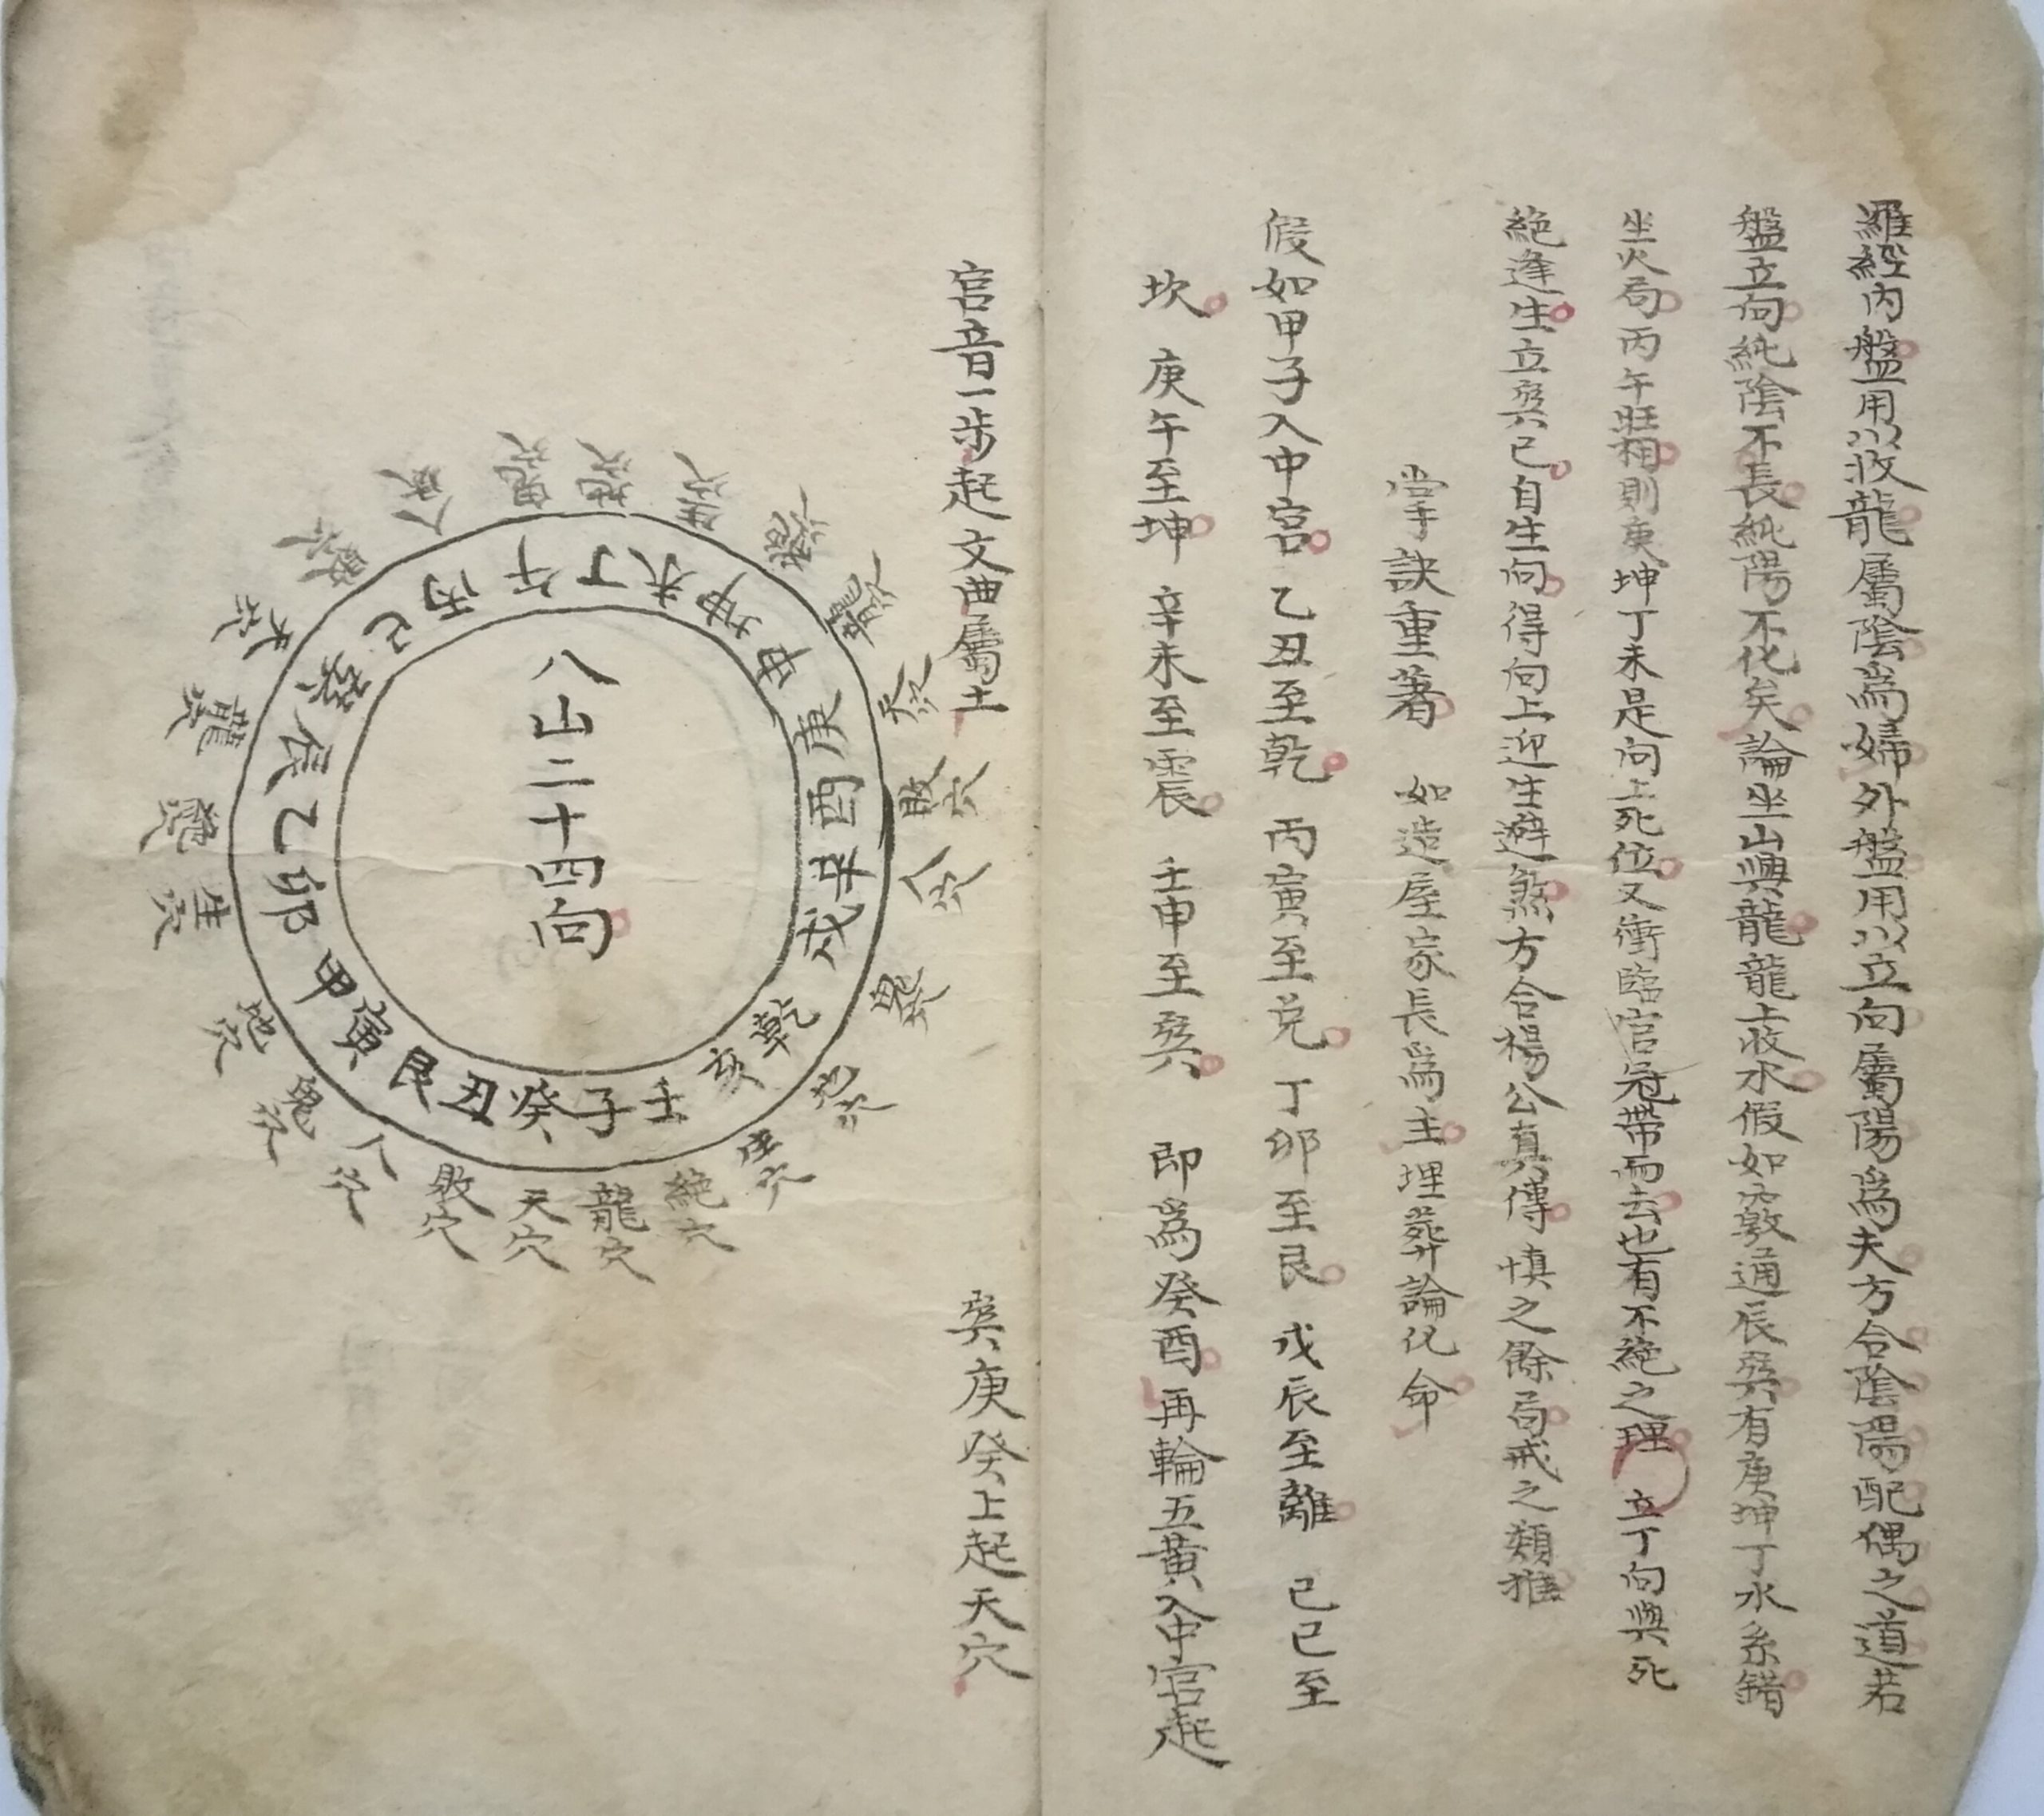 羅經內盤用以收龍屬陰爲婦外盤用以立向屬陽爲夫方合陰陽配偶之道若
盤立向純陰不長純陽不化矣論坐山與龍龍上收水假如敦通辰巽有庚坤丁水糸錯
坐火局丙午旺相則庚坤丁未是向上死位又衝臨官冠帶而去也有不絶之理 立丁向與死
絶逢生立巽巳自生向得向上迎生避煞方合楊公真傳慎之餘局戒之類推
掌訣重著 如造屋家長爲主埋葬論化命
假如甲子入中宮 乙丑至乾 丙寅至兌 丁卯至艮 戊辰至離 己巳至
坎 庚午至坤 辛未至震 壬申至巽 即爲癸酉再輪五黃入中宮起
宮音一步起文曲屬土
巽庚癸上起天穴
八山二十四向
壬
子
癸
丑
艮
寅
甲
卯
乙
辰
巽
巳
丙
午
丁
未
坤
申
庚
酉
辛
戌
乾
亥
絶穴
龍穴
天穴
敗穴
人穴
鬼穴
地穴
生穴
絶穴
龍穴
天穴
敗穴
人穴
鬼穴
地穴
生穴
絶穴
龍穴
天穴
敗穴
人穴
鬼穴
地穴
生穴